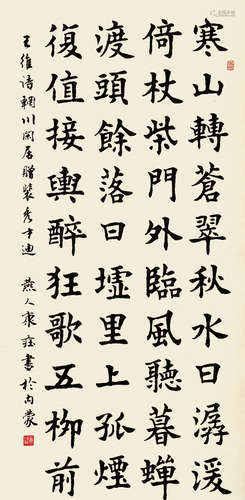 寒山轉蒼翠秋水日潺湲
倚杖柴門外臨風聽暮蟬
渡頭餘落日墟里上孤煙
復值接輿醉狂歌五柳前
王維诗輞川闲居贈裴秀才迪 燕人康莊書於内蒙